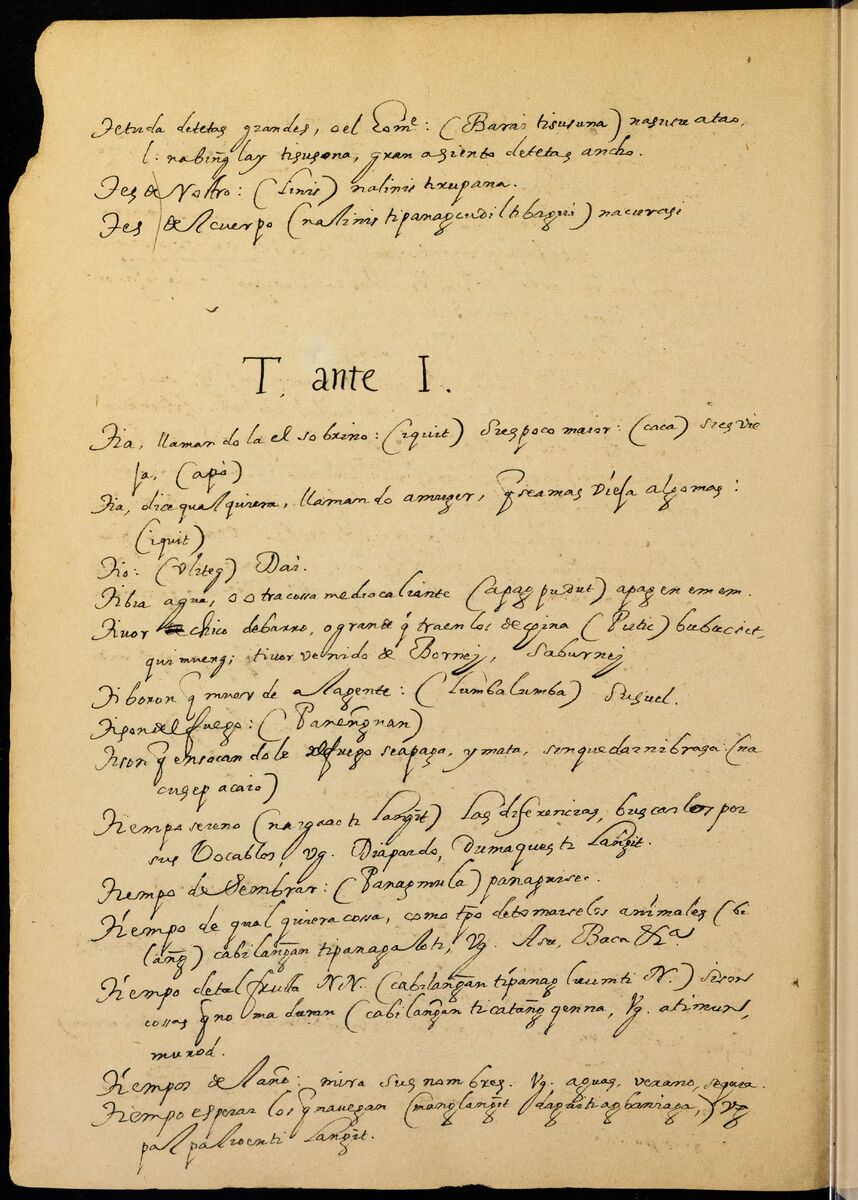 Tetuda de tetas grandes, o el home: (Barai tisusuna) nasusu a tao,
l. nabing̃lay tisusona, gran asiento de tetas ancho.
Tes de Rostro: (Linis) nalinis ti rupana.
Tes del cuerpo (nalinis tipanagcudil ti bagui) nacurasi
T. ante I.
Tia, llamandola el sobrino: (iquit) si es poco maior: (caca) si es vie
ja, (apò)
Tia, dice qualquiera, llamando a muger, q̃ sea mas vieja algo mas:
(iquit)
Tio: (Vliteg) Dai.
Tibia agua, o otra cossa mediocaliante (apag pudut) apag en em em.
Tivor chico de barro, o grande q̃ traen los de (Putic) bubucsit,
tivor venido de Bornei, Saburnei
Tiboron q̃ muerde a la gente: (Lumbalumba) Susuel.
Tison del fuego: (Paneng̃nan)
Tison q̃ en sacandole del fuego se apaga, y mata, sin quedar ni braga: (na
cusep a caio)
Tiempo sereno (nargaao ti Lang̃it) las diferencias, buscarlos por
sus Vocablos, Vg. Diapardo, Dumaques ti Lang̃it.
Tiempo de Sembrar: (Panagmula) panaguisec.
Tiempo de qualquiera cossa, como tp̃o de tomarse los animales (bu
lang̃) cabilang̃an tipanagaloti, Vg. Asu, Baca &ca
Tiempo de tal frutta N.N. (cabilang̃an tipanag luum ti N.) si son
cossas q̃ no maduran (cabilang̃an ti catang̃qenna, Vg. atimun,
Tiempos del año: mira sus nombres. Vg. aguas, verano, sequia.
Tiempo esperar los q̃ navegan (manglang̃it daguitiagbaniaga,) Vg
palpalioen ti Lang̃it.